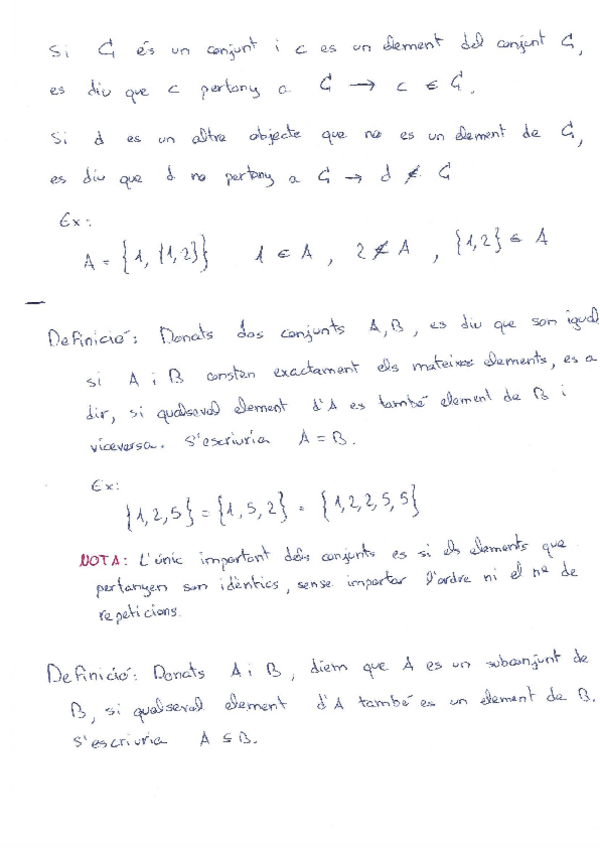 Si C és un conjunt i c es un element del conjunt C,
es diu que c pertany a C → c ∈ C.
Si d es un altre objecte que no es un element de C,
es diu que d no pertany a C → d ∉ C
Ex:
A = {1, {1,2}} 1 ∈ A, 2 ∉ A, {1,2} ∈ A
Definició: Donats dos conjunts A, B, es diu que son igual
si A i B consten exactament els mateixos elements, es a
dir, si qualsevol element d'A es també element de B i
viceversa. S'escriuria A = B.
Ex:
{1,2,5} = {1,5,2} = {1,2,2,5,5}
NOTA: L'únic important dels conjunts es si els elements que
pertanyen son idèntics, sense importar l'ordre ni el nº de
repeticions.
Definició: Donats A i B, diem que A es un subconjunt de
B, si qualsevol element d'A també es un element de B.
S'escriuria A ⊆ B.